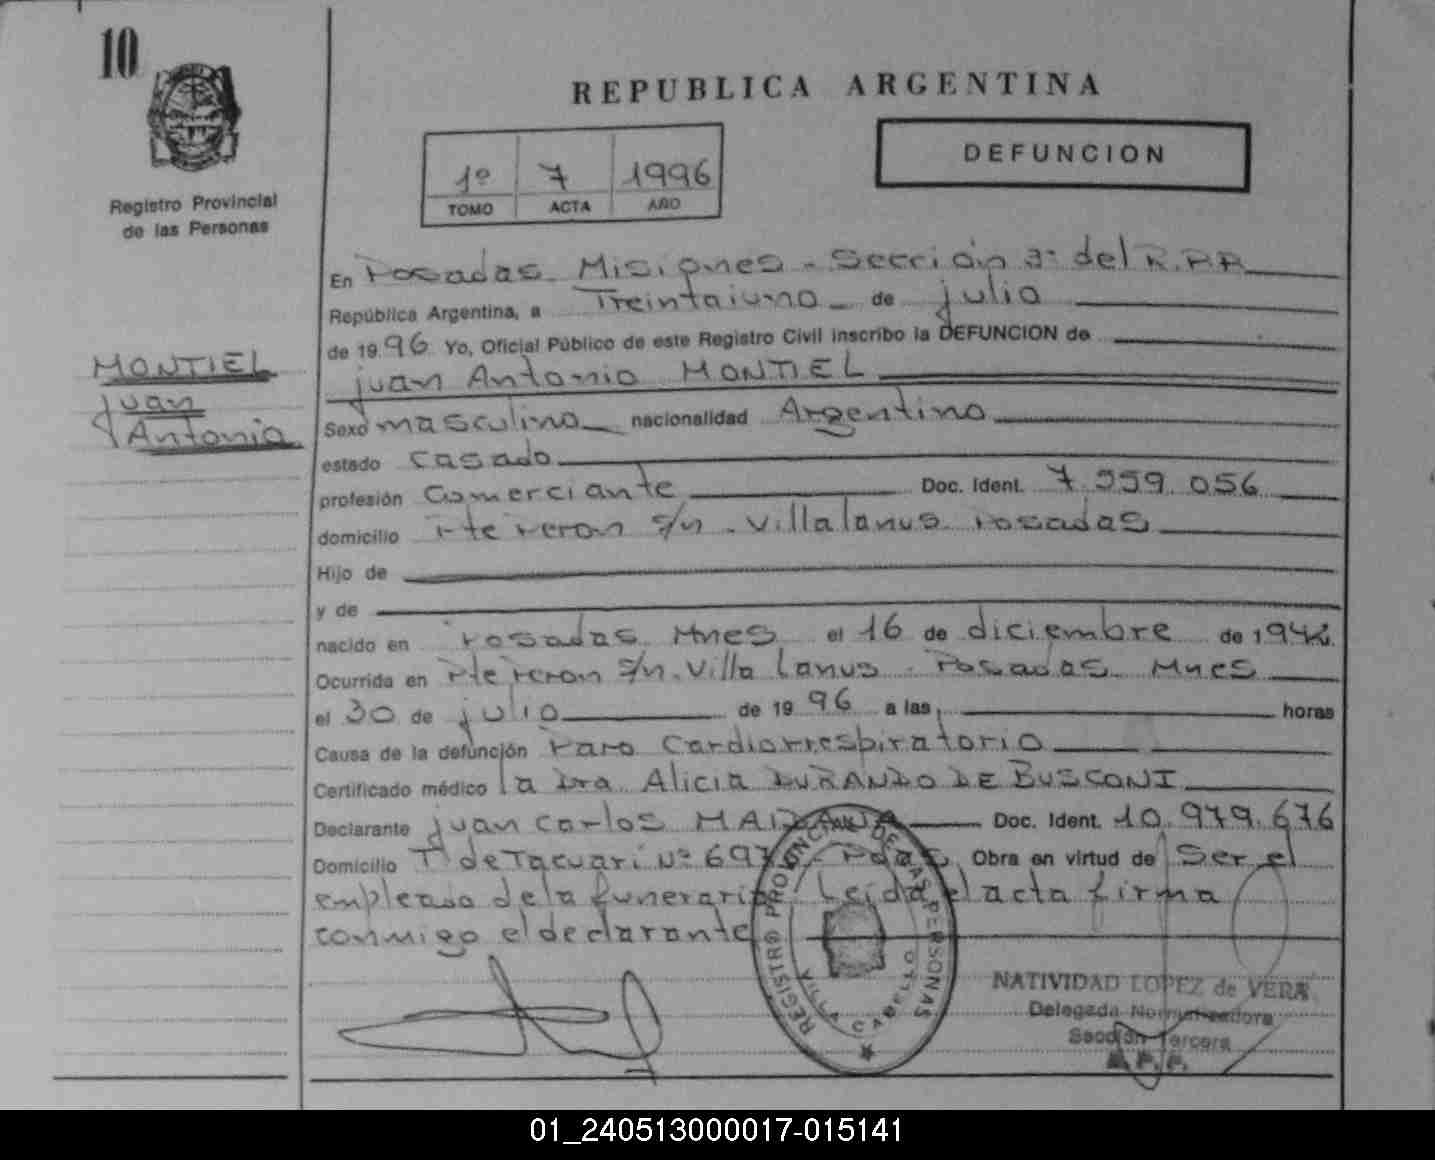 10
REPUBLICA ARGENTINA
Registro Provincial
de las Personas
1º 7 1996
TOMO ACTA AÑO
DEFUNCION
MONTIEL
Juan
Antonio
En Posadas Misiones - Sección 3ª del R.P.P.
República Argentina, a Treintaiuno de julio
de 1996 Yo, Oficial Público de este Registro Civil inscribo la DEFUNCION de
juan Antonio MONTIEL
Sexo masculino nacionalidad Argentino
estado casado
profesión Comerciante Doc. Ident. 7.559.056
domicilio Pte Peron s/n - Villalanus Posadas
Hijo de
y de
nacido en Posadas Mnes el 16 de diciembre de 194
Ocurrida en Pte Peron s/n. Villa Lanus - Posadas Mnes
el 30 de julio de 1996 a las horas
Causa de la defunción Paro Cardiorrespiratorio
Certificado médico la Dra. Alicia DURANDO DE BUSCONI
Declarante juan Carlos MAIDANA Doc. Ident. 10.979.676
Domicilio Tº de Tacuari Nº 697 - Pdas Obra en virtud de Ser el
empleado de la funeraria Leida el acta firma
conmigo el declarante
REGISTRO PROVINCIAL DE LAS PERSONAS
VILLA CABELLO
NATIVIDAD LOPEZ de VERA
Delegada Normalizadora
Sección Tercera
R.P.P.
01_240513000017-015141